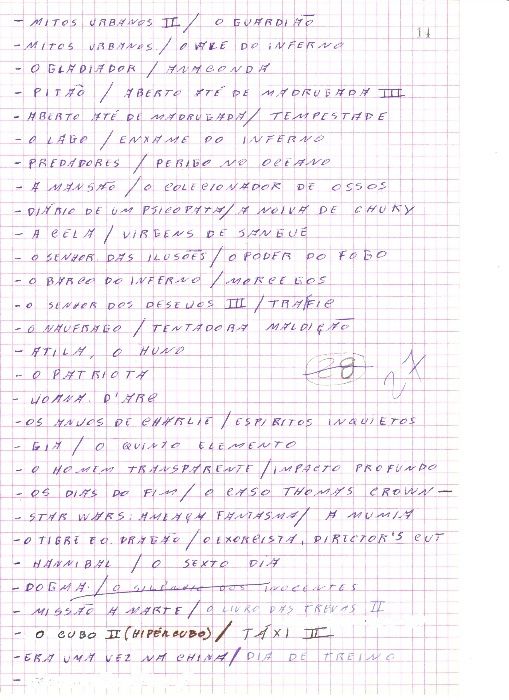 11
- MITOS URBANOS II / O GUARDIÃO
- MITOS URBANOS / O VALE DO INFERNO
- O GLADIADOR / ANACONDA
- PITÃO / ABERTO ATÉ DE MADRUGADA III
- ABERTO ATÉ DE MADRUGADA / TEMPESTADE
- O LAGO / ENXAME DO INFERNO
- PREDADORES / PERIGO NO OCEANO
- A MANSÃO / O COLECIONADOR DE OSSOS
- DIÁRIO DE UM PSICOPATA / A NOIVA DE CHUKY
- A CELA / VIRGENS DE SANGUE
- O SENHOR DAS ILUSÕES / O PODER DO FOGO
- O BARCO DO INFERNO / MORCEGOS
- O SENHOR DOS DESEJOS III / TRAFIC
- O NAUFRAGO / TENTADORA MALDIÇÃO
- ATILA, O HUNO
- O PATRIOTA
28
27
- JOANA D'ARC
- OS ANJOS DE CHARLIE / ESPIRITOS INQUIETOS
- GIA / O QUINTO ELEMENTO
- O HOMEM TRANSPARENTE / IMPACTO PROFUNDO
- OS DIAS DO FIM / O CASO THOMAS CROWN -
- STAR WARS: AMEAÇA FANTASMA / A MUMIA
- O TIGRE E O DRAGÃO / O EXORCISTA, DIRECTOR'S CUT
- HANNIBAL / O SEXTO DIA
- DOGMA / O SILÊNCIO DOS INOCENTES
- MISSÃO A MARTE / O LIVRO DAS TREVAS II
- O CUBO II (HIPERCUBO) / TÁXI II
- ERA UMA VEZ NA CHINA / DIA DE TREINO
-